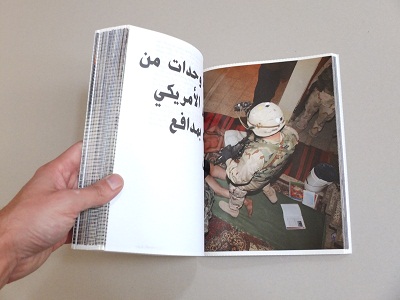 وحدات من
الأمريكي
بمدافع